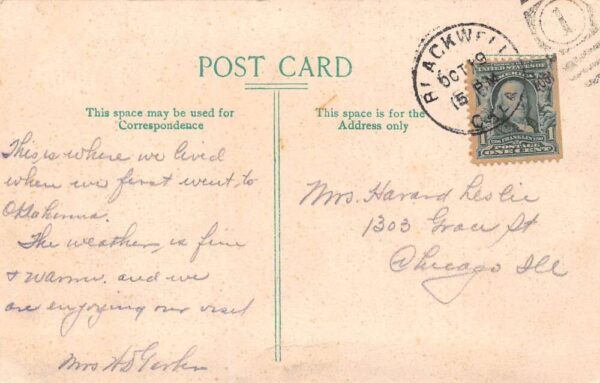 POST CARD
This space may be used for
Correspondence
This space is for the
Address only
This is where we lived
when we first went to
Oklahoma.
The weather is fine
& warm. and we
are enjoying our visit
Mrs
Mrs. Havard Leslie
1303 Grace St
Chicago Ill
BLACKWELL
OCT 19
5 PM
OKLA
1
UNITED STATES OF
AMERICA
FRANKLIN
1
POSTAGE
ONE CENT
1